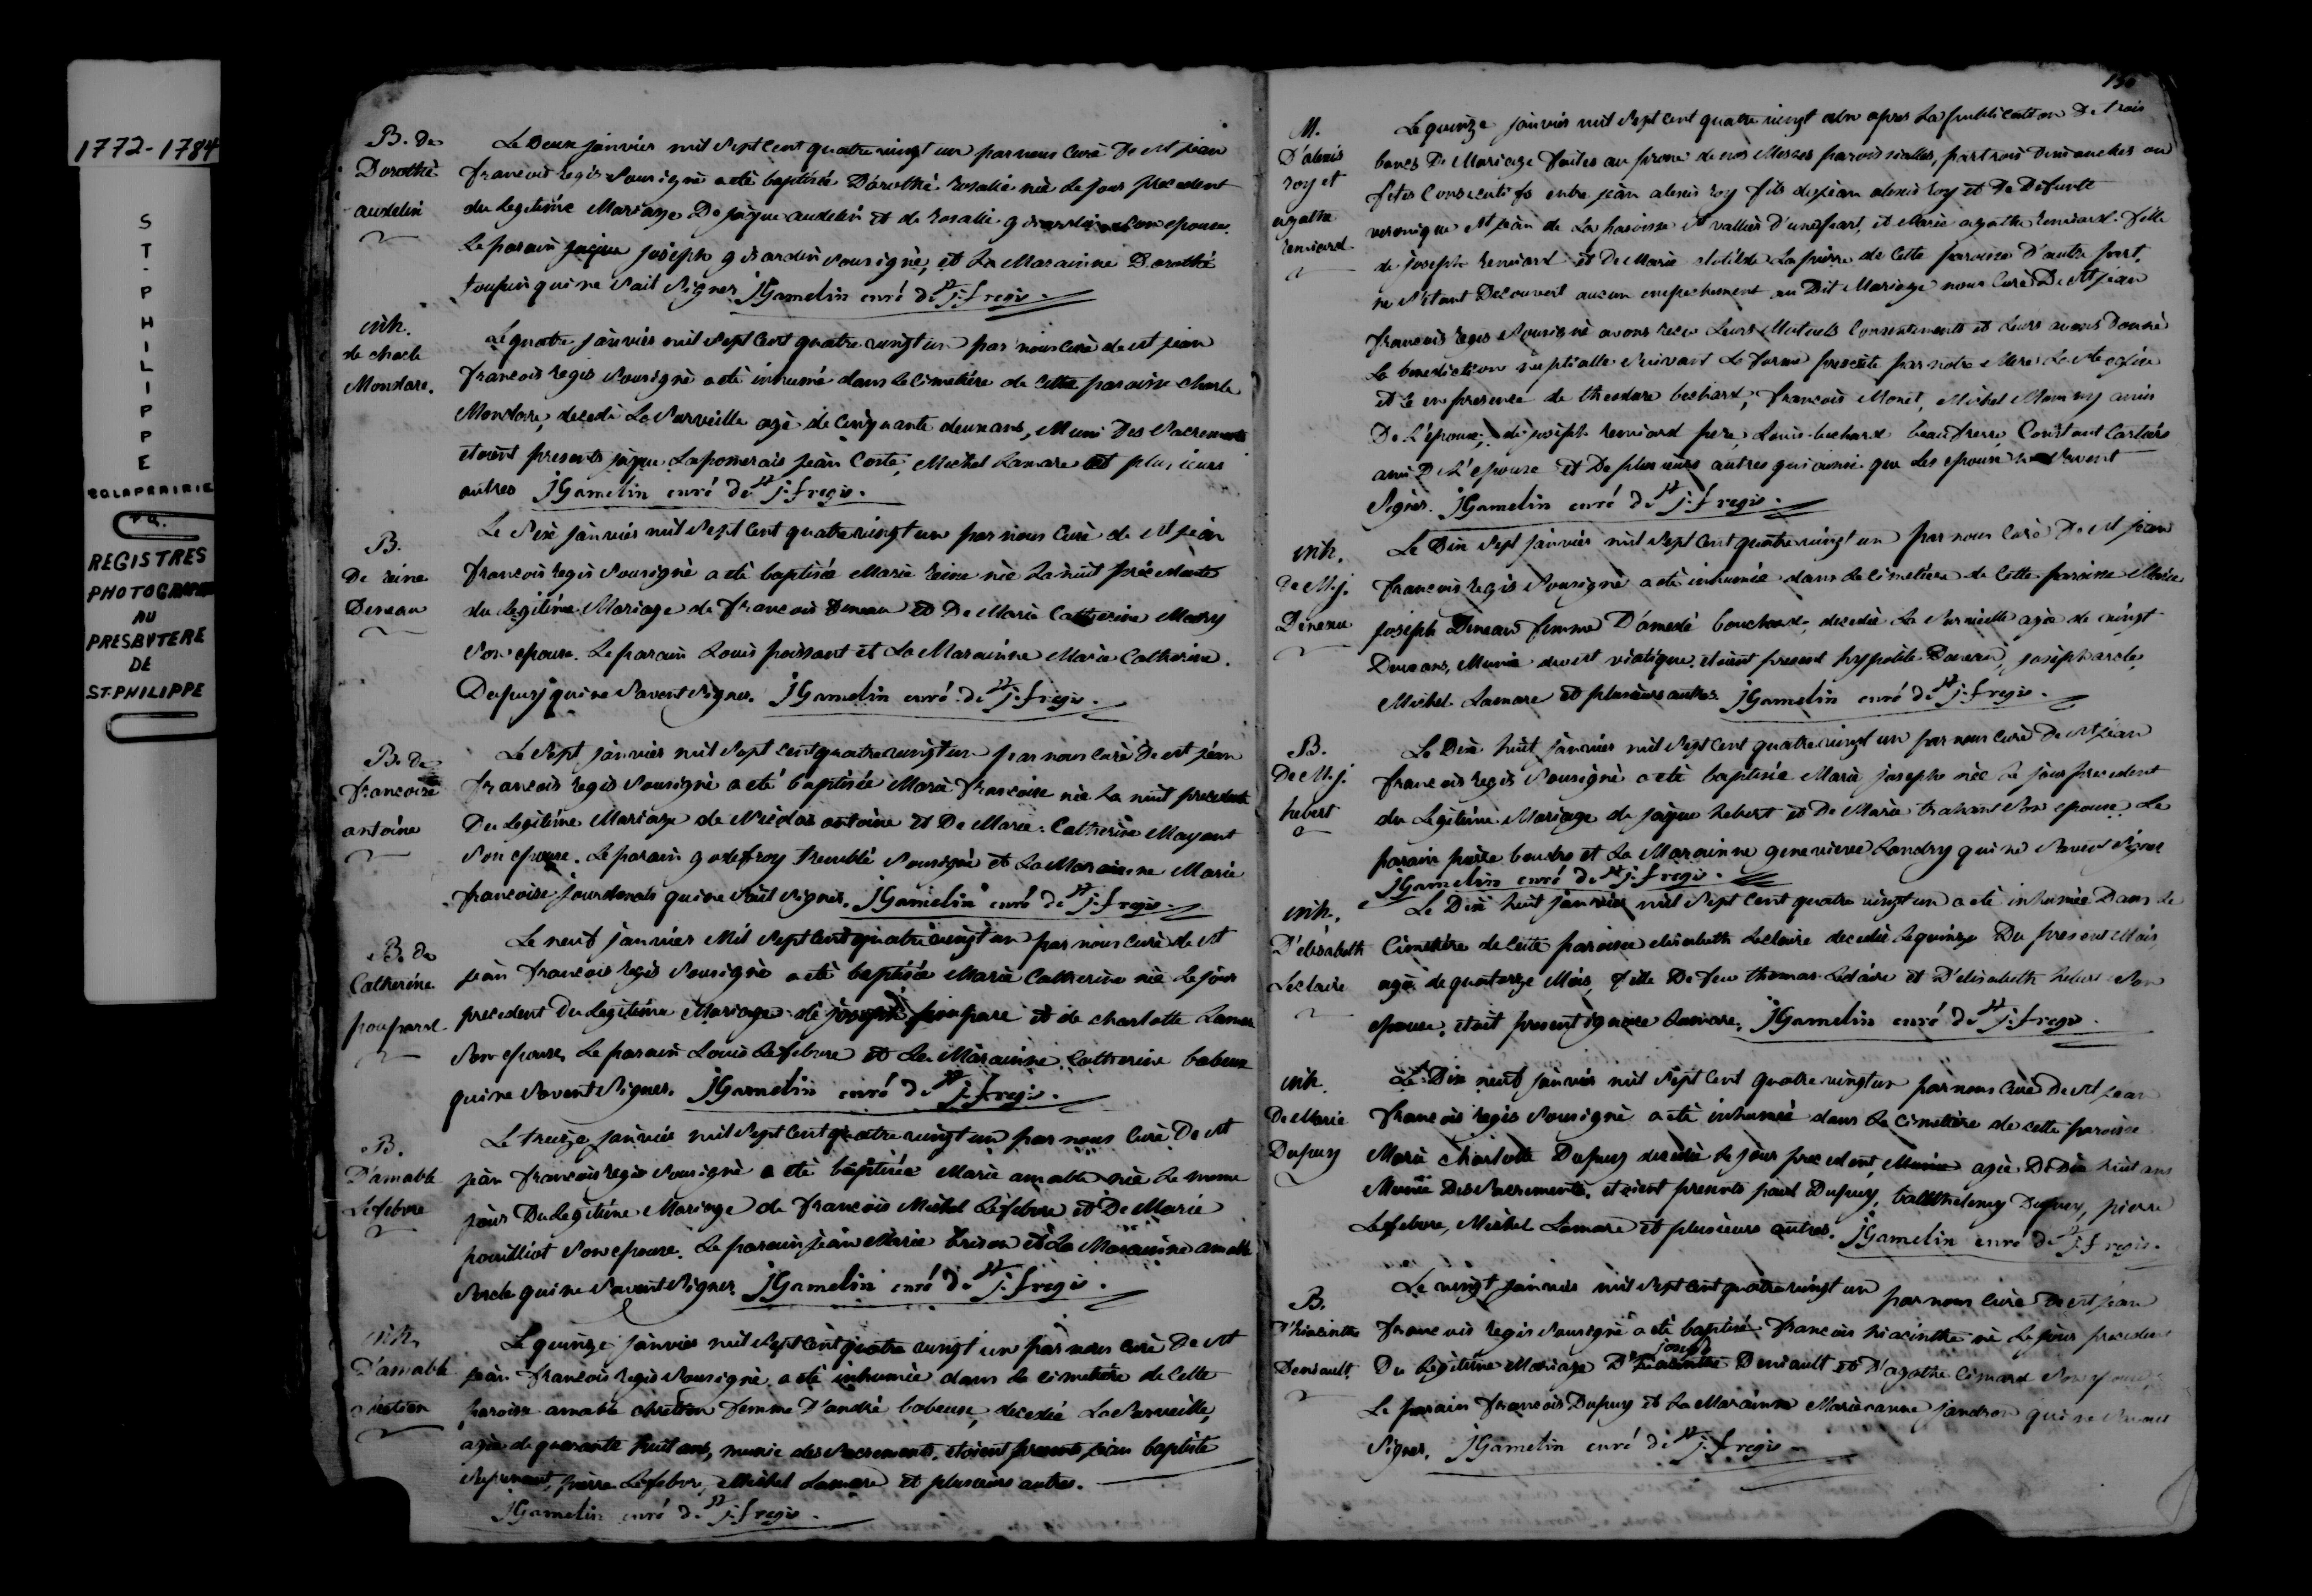 1772-1784
ST. PHILIPPE
CO LAPRAIRIE
P.Q.
REGISTRES
PHOTOGRAPHIÉ
AU
PRESBYTERE
DE
ST-PHILIPPE
B. de
Dorothé
audelin
Le Deux janvier mil sept cent quatre vingt un par nous curé De st jean
francois regis sousigné a eté baptisée Dorothé rosalie née le jour precedent
du legitime Mariage De jaque audelin et de rosalie girardin son epouse.
Le parain joseph girardin sousigné, et La Marainne Dorothé
toupin qui ne sait signer JGamelin curé de st j. f regis.
inh.
de charle
Mondore.
Le quatre janvier mil sept cent quatre vingt un par nous curé de st jean
francois regis sousigné a eté inhumé dans le cimetière de cette paroisse charle
Mondore, decedé La surveille agé de cinquante deux ans, Muni Des sacrements
etoient presents jaque Lapomerais jean Coste, Michel Lamare et plusieurs
autres JGamelin curé de st j. f regis.
B.
De reine
Deneau
Le Six janvier mil sept cent quatre vingt un par nous curé de st jean
francois regis sousigné a eté baptisée Marie reine née La nuit précedente
du legitime Mariage de francois Deneau et De Marie Catherine
son epouse. Le parain Louis poissant et La Marainne Marie Catherine
Dupuy qui ne savent signer. JGamelin curé de st j. f regis.
B. de
francoise
antoine
Le Sept janvier mil sept cent quatre vingt un par nous curé de st jean
francois regis sousigné a eté baptisée Marie francoise née La nuit precedente
Du legitime Mariage de Nicolas antoine et De Marie Catherine Mayant
son epouse. Le parain godefroy tremblé sousigné et La Marainne Marie
francoise jourdonais qui ne sait signer. JGamelin curé de st j. f regis.
B. de
Catherine
poupard
Le neuf janvier Mil sept cent quatre vingt un par nous curé de st
jean francois regis sousigné a eté baptisée Marie Catherine née Le jour
precedent Du legitime Mariage de joseph poupare et de charlotte Lamare
son epouse. Le parain Louis Lefebvre et La Marainne Catherine babeux
qui ne savent signer. JGamelin curé de st j. f regis.
B.
D'amable
Lefebvre
Le treize janvier mil sept cent quatre vingt un par nous curé De st
jean francois regis sousigné a eté baptisée Marie amable née Le meme
jour Du legitime Mariage de francois Michel Lefebvre et De Marie
pouilliot son epouse. Le parain jean Marie brison et La Marainne amable
qui ne savent signer. JGamelin curé de st j. f regis.
inh.
D'amable
chretien
Le quinze janvier mil sept cent quatre vingt un par nous curé De st
jean francois regis sousigné a eté inhumée dans Le cimetière de cette
paroisse amable chretien femme D'andré babeuse, decedée La surveille
agée de quarante huit ans, munie des sacrements. etoient presents jean baptiste
pierre Lefebvre, Michel Lamare et plusieurs autres.
JGamelin curé de st j. f regis.
130
M.
D'alexis
roy et
agathe
Le quinze janvier mil sept cent quatre vingt un apres La publication De trois
bancs De Mariage faites au prone de nos Messes paroissialles, par trois dimanches ou
fetes Consecutifs entre jean alexis roy fils de jean alexis roy et De Defunte
veronique St jean de La paroisse St vallier D'une part, et Marie agathe fille
de joseph et De Marie Clotilde Lapierre de cette paroisse D'autre part,
ne s'etant Decouvert aucun empechement au Dit Mariage nous Curé De st jean
francois regis sousigné avons recu Leurs Mutuels Consentements et Leurs avons Donné
La benediction nuptialle suivant La forme prescrite par notre Mere La ste eglise
et ce en presence de theodore bechard, francois Monet, Michel amis
De L'epoux; de joseph pere, Louis bechard beaufrere Constant Cartier
ami De L'epouse et De plusieurs autres qui ainsi que Les epoux ne savent
signer. JGamelin curé de st j. f regis.
inh.
De M. j.
Deneau
Le Dix sept janvier mil sept cent quatre vingt un par nous Curé De st jean
francois regis sousigné a eté inhumée dans Le cimetière de Cette paroisse Marie
joseph Deneau femme D'amedé bouchard, decedée La surveille agée de vingt
Deux ans, Munie du st viatique. etoient present hyppolite Deneau,
Michel Lamare et plusieurs autres. JGamelin curé de st j. f regis.
B.
De M. j.
hebert
Le Dix huit janvier mil sept cent quatre vingt un par nous curé De st jean
francois regis sousigné a eté baptisée Marie josephe née Le jour precedent
du Legitime Mariage de jaque hebert et De Marie trahant son epouse. Le
parain pierre boudro et La Marainne genevieve Landry qui ne savent signer
JGamelin curé de st j. f regis.
inh.
D'elisabeth
Leclaire
Le Dix huit janvier mil sept cent quatre vingt un a eté inhumée Dans Le
Cimetière de cette paroisse elisabeth Leclaire decedée Le quinze Du present Mois
agée de quatorze Mois, fille De feu thomas Leclaire et D'elisabeth hebert son
epouse, etoit present ignace Lamare, JGamelin curé de st j. f regis.
inh.
De Marie
Dupuy
Le Dix neuf janvier mil sept cent quatre vingt un par nous curé De st jean
francois regis sousigné a eté inhumée dans Le cimetière de cette paroisse
Marie charlotte Dupuy decedée Le jour precedent agée De Dix huit ans
Munie Des sacrements. etoient presents paul Dupuy, Dupuy, pierre
Lefebvre, Michel Lamare et plusieurs autres. JGamelin curé de st j. f regis.
B.
D'hiacinthe
Deniault
Le vingt janvier mil sept cent quatre vingt un par nous curé De st jean
francois regis sousigné a eté baptisé francois hiacinthe né Le jour precedent
joseph
Du Legitime Mariage D'hiacinthe Deniault et D'agathe Cimard son epouse.
Le parain francois Dupuy et La Marainne Marie anne jandron qui ne savent
signer. JGamelin curé de st j. f regis.